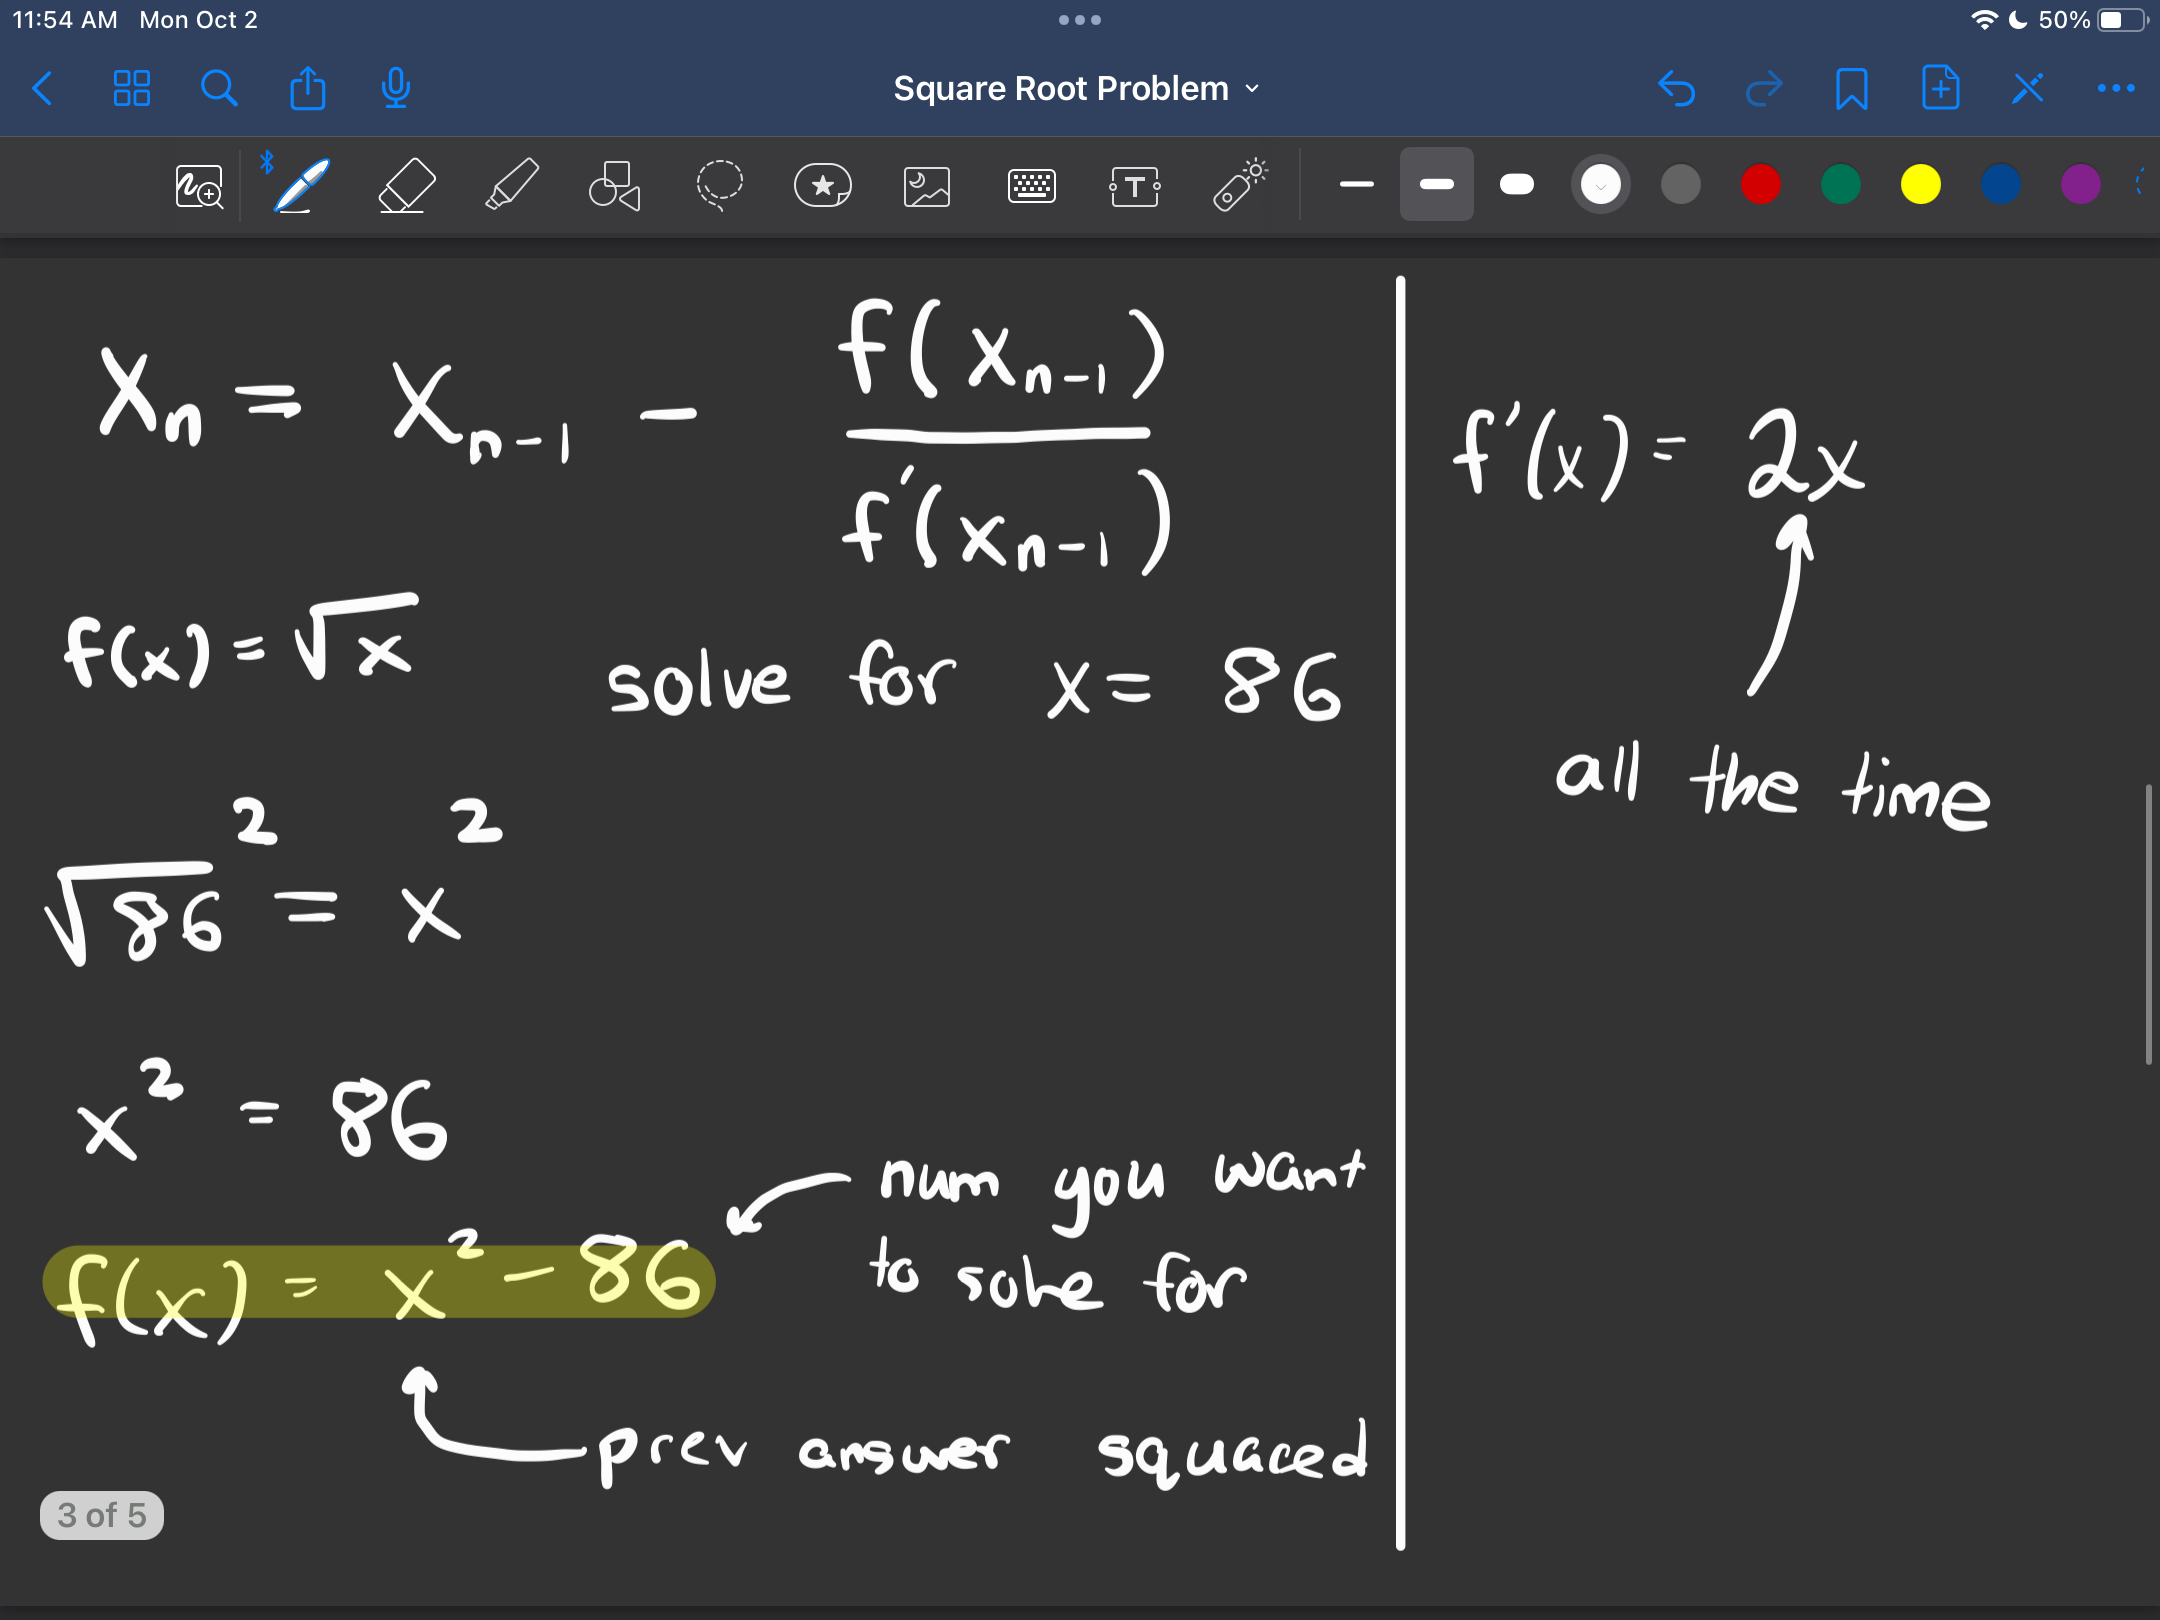 11:54 AM Mon Oct 2
50%
Square Root Problem
T
Xn = Xn-1 - f(xn-1) / f'(xn-1)
f(x) = √x solve for x = 86
√86² = x²
x² = 86
f(x) = x² - 86
num you want
to solve for
prev answer squared
f'(x) = 2x
all the time
3 of 5